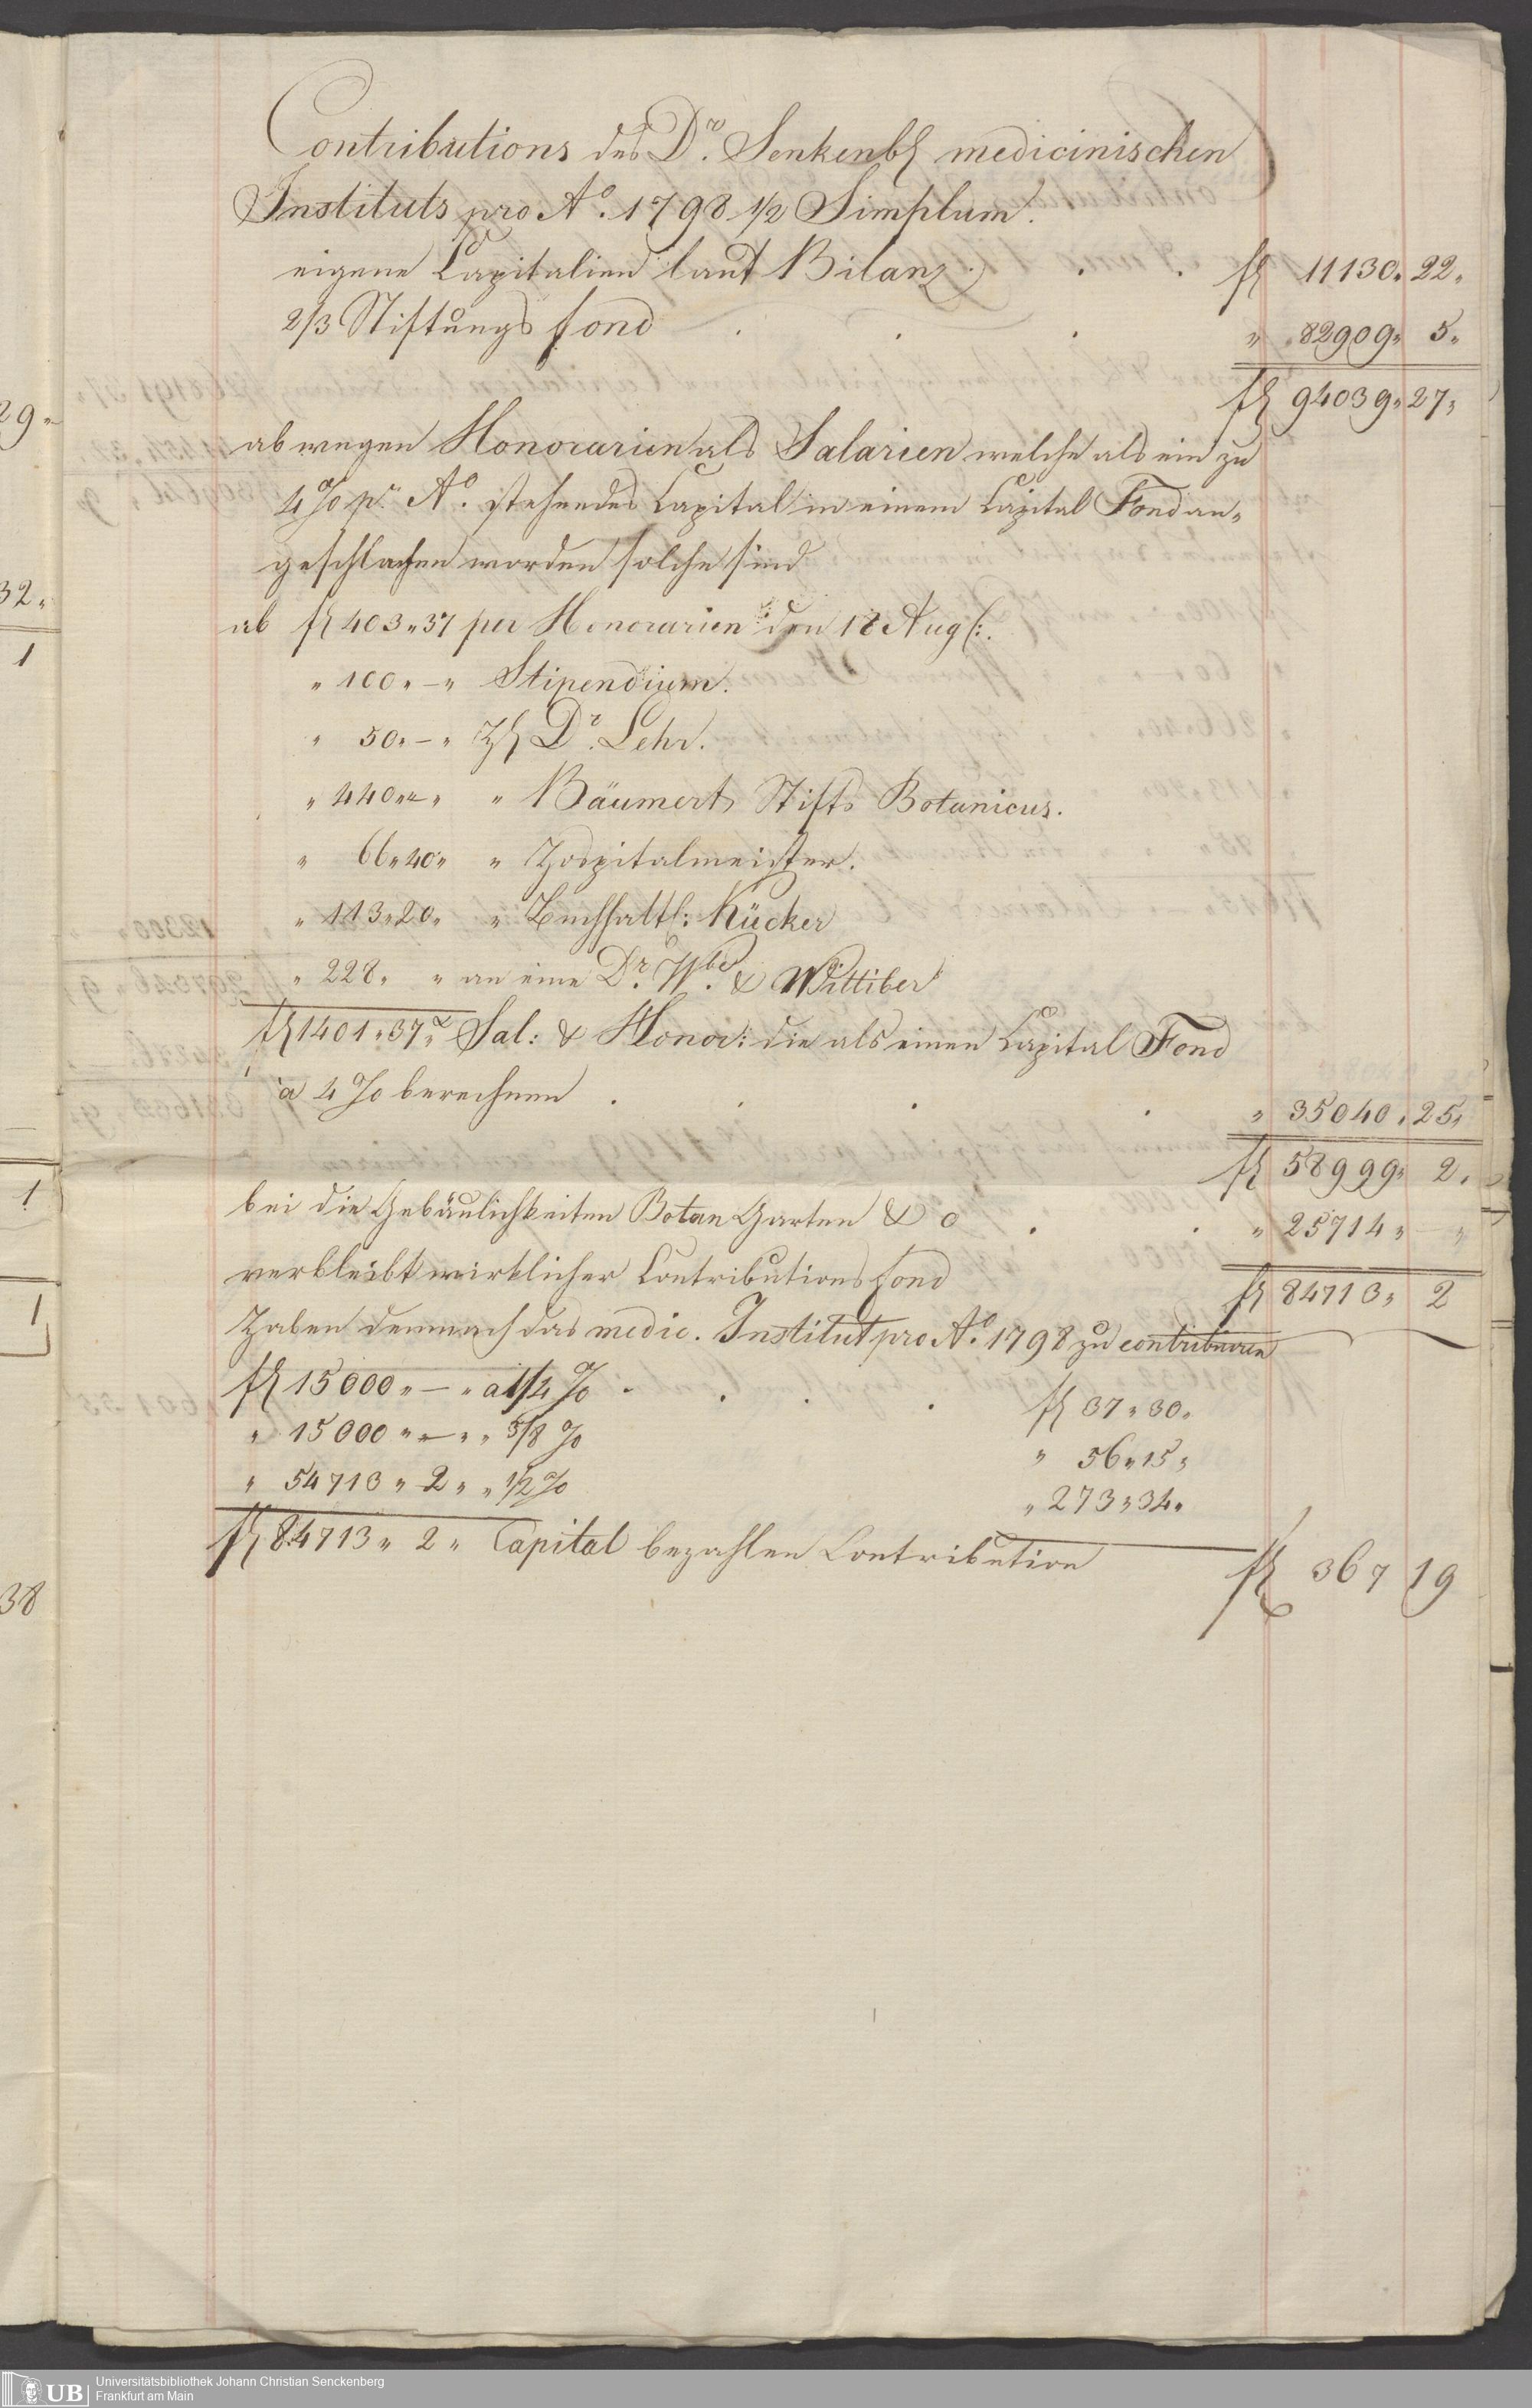 Contributions des Dr. Senkenb. medicinischen
Instituts pro Ao. 1798 1/2 Simplum.
eigene Capitalien laut Bilanz . . f 11130 " 22 "
2/3 Stiftungs fond . . . " 82909 " 5 "
f 94039 " 27 "
ab wegen Honorarien als Salarien welche als ein zu
4 % pr. Ao. stehendes Capital in einem Capital Fond an-
geschlachen worden solche sind
ab f 403 " 37 per Honorarien den 18 Aug:
" 100 " – " Stipendium.
" 50 " – " H Dr. Lehr.
" 440 " – " " Bäumert Stifts Botanicus.
" 66 " 40 " " Hospitalmeister.
" 113 " 20 " " Buchhalt: Kücker
" 228 " " an eine Dr. Wbe & Wittiber
f 1401 " 37 " Sal: & Honor: die als einen Capital Fond
a 4 % berechnen . . . . " 35040 " 25 "
f 58999 " 2 "
bei die Gebäulichkeiten Botan Garten & c . . " 25714 " – "
verbleibt wirklicher Contributions fond f 84713 " 2
Haben demnach das medic. Institut pro Ao. 1798 zu contribuiren
f 15000 " – " a 1/4 % . . . . f 37 " 30 "
" 15000 " – " " 3/8 % " 56 " 15 "
" 54713 " 2 " " 1/2 % " 273 " 34 "
f 84713 " 2 " Capital bezahlen Contribution f 367 19
29 "
32 "
1
1
1
38
UB Universitätsbibliothek Johann Christian Senckenberg
Frankfurt am Main